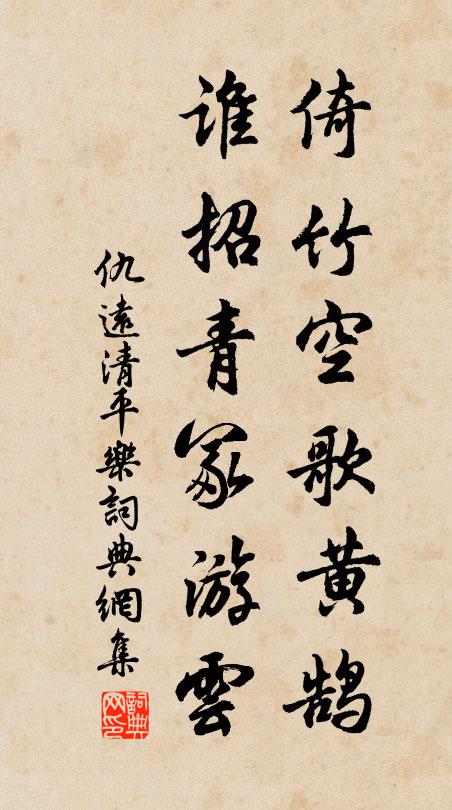 倚竹空歌黄鹄
谁招青冢游雲
仇遠清平樂詞典網集
詞典网印